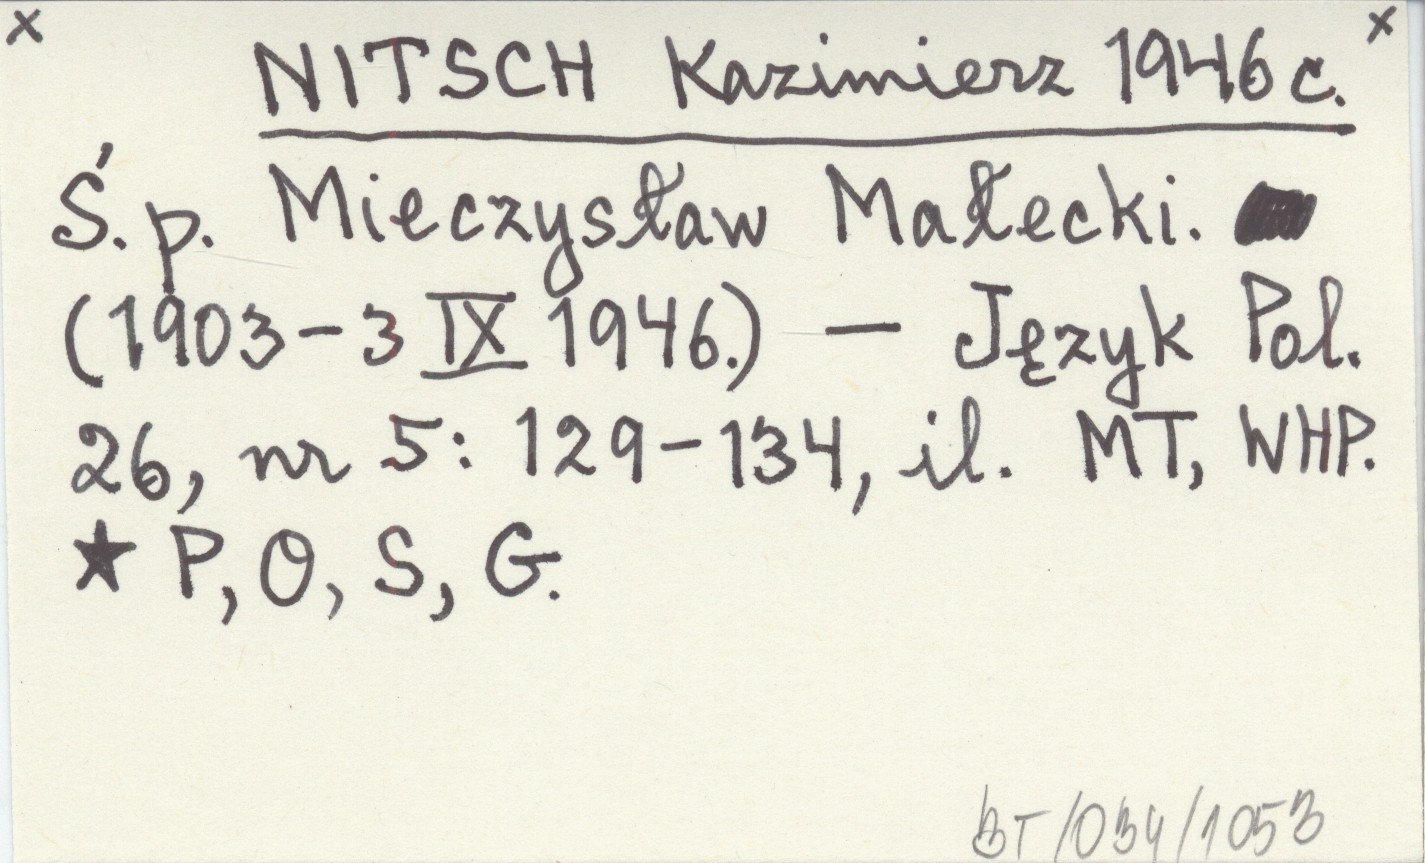 x x
NITSCH Kazimierz 1946 c.
Ś.p. Mieczysław Małecki.
(1903-3 IX 1946.) — Język Pol.
26, nr 5: 129-134, il. MT, WHP.
★ P, O, S, G.
BT/034/1053